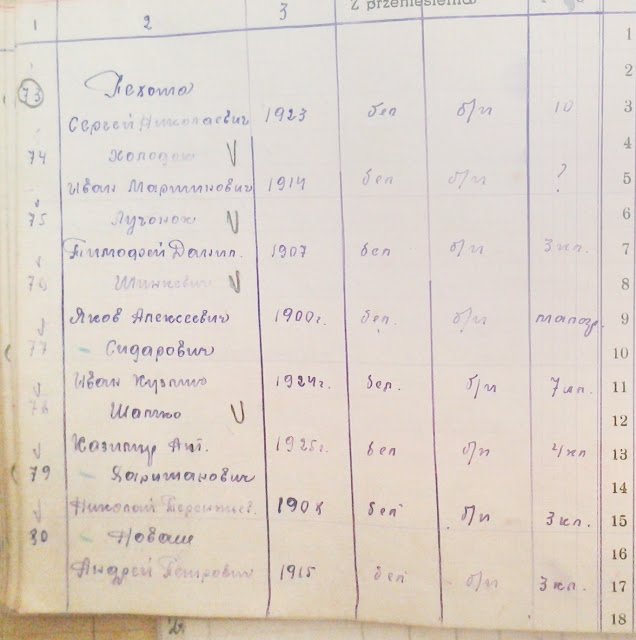 Z przeniesienia
1 2 3
1
2
73 Пехота
Сергей Николаевич 1923 бел б/п 10 3
4
74 Холодок V
Иван Мартинович 1914 бел б/п ? 5
6
75 Лучонок V
Тимофей Данил. 1907 бел б/п 3 кл. 7
8
76 Шинкевич V
Яков Алексеевич 1900г. бел. б/п малогр. 9
77 – Сидарович 10
Иван Кузьмич 1924г. бел. б/п 7 кл. 11
78 Шапко V 12
Казимир Ант. 1925г. бел б/п 4 кл 13
79 – Хаританович 14
Николай Терентьев. 1908 бел б/п 3 кл. 15
80 – Новаш 16
Андрей Петрович 1915 бел б/п 3 кл. 17
18